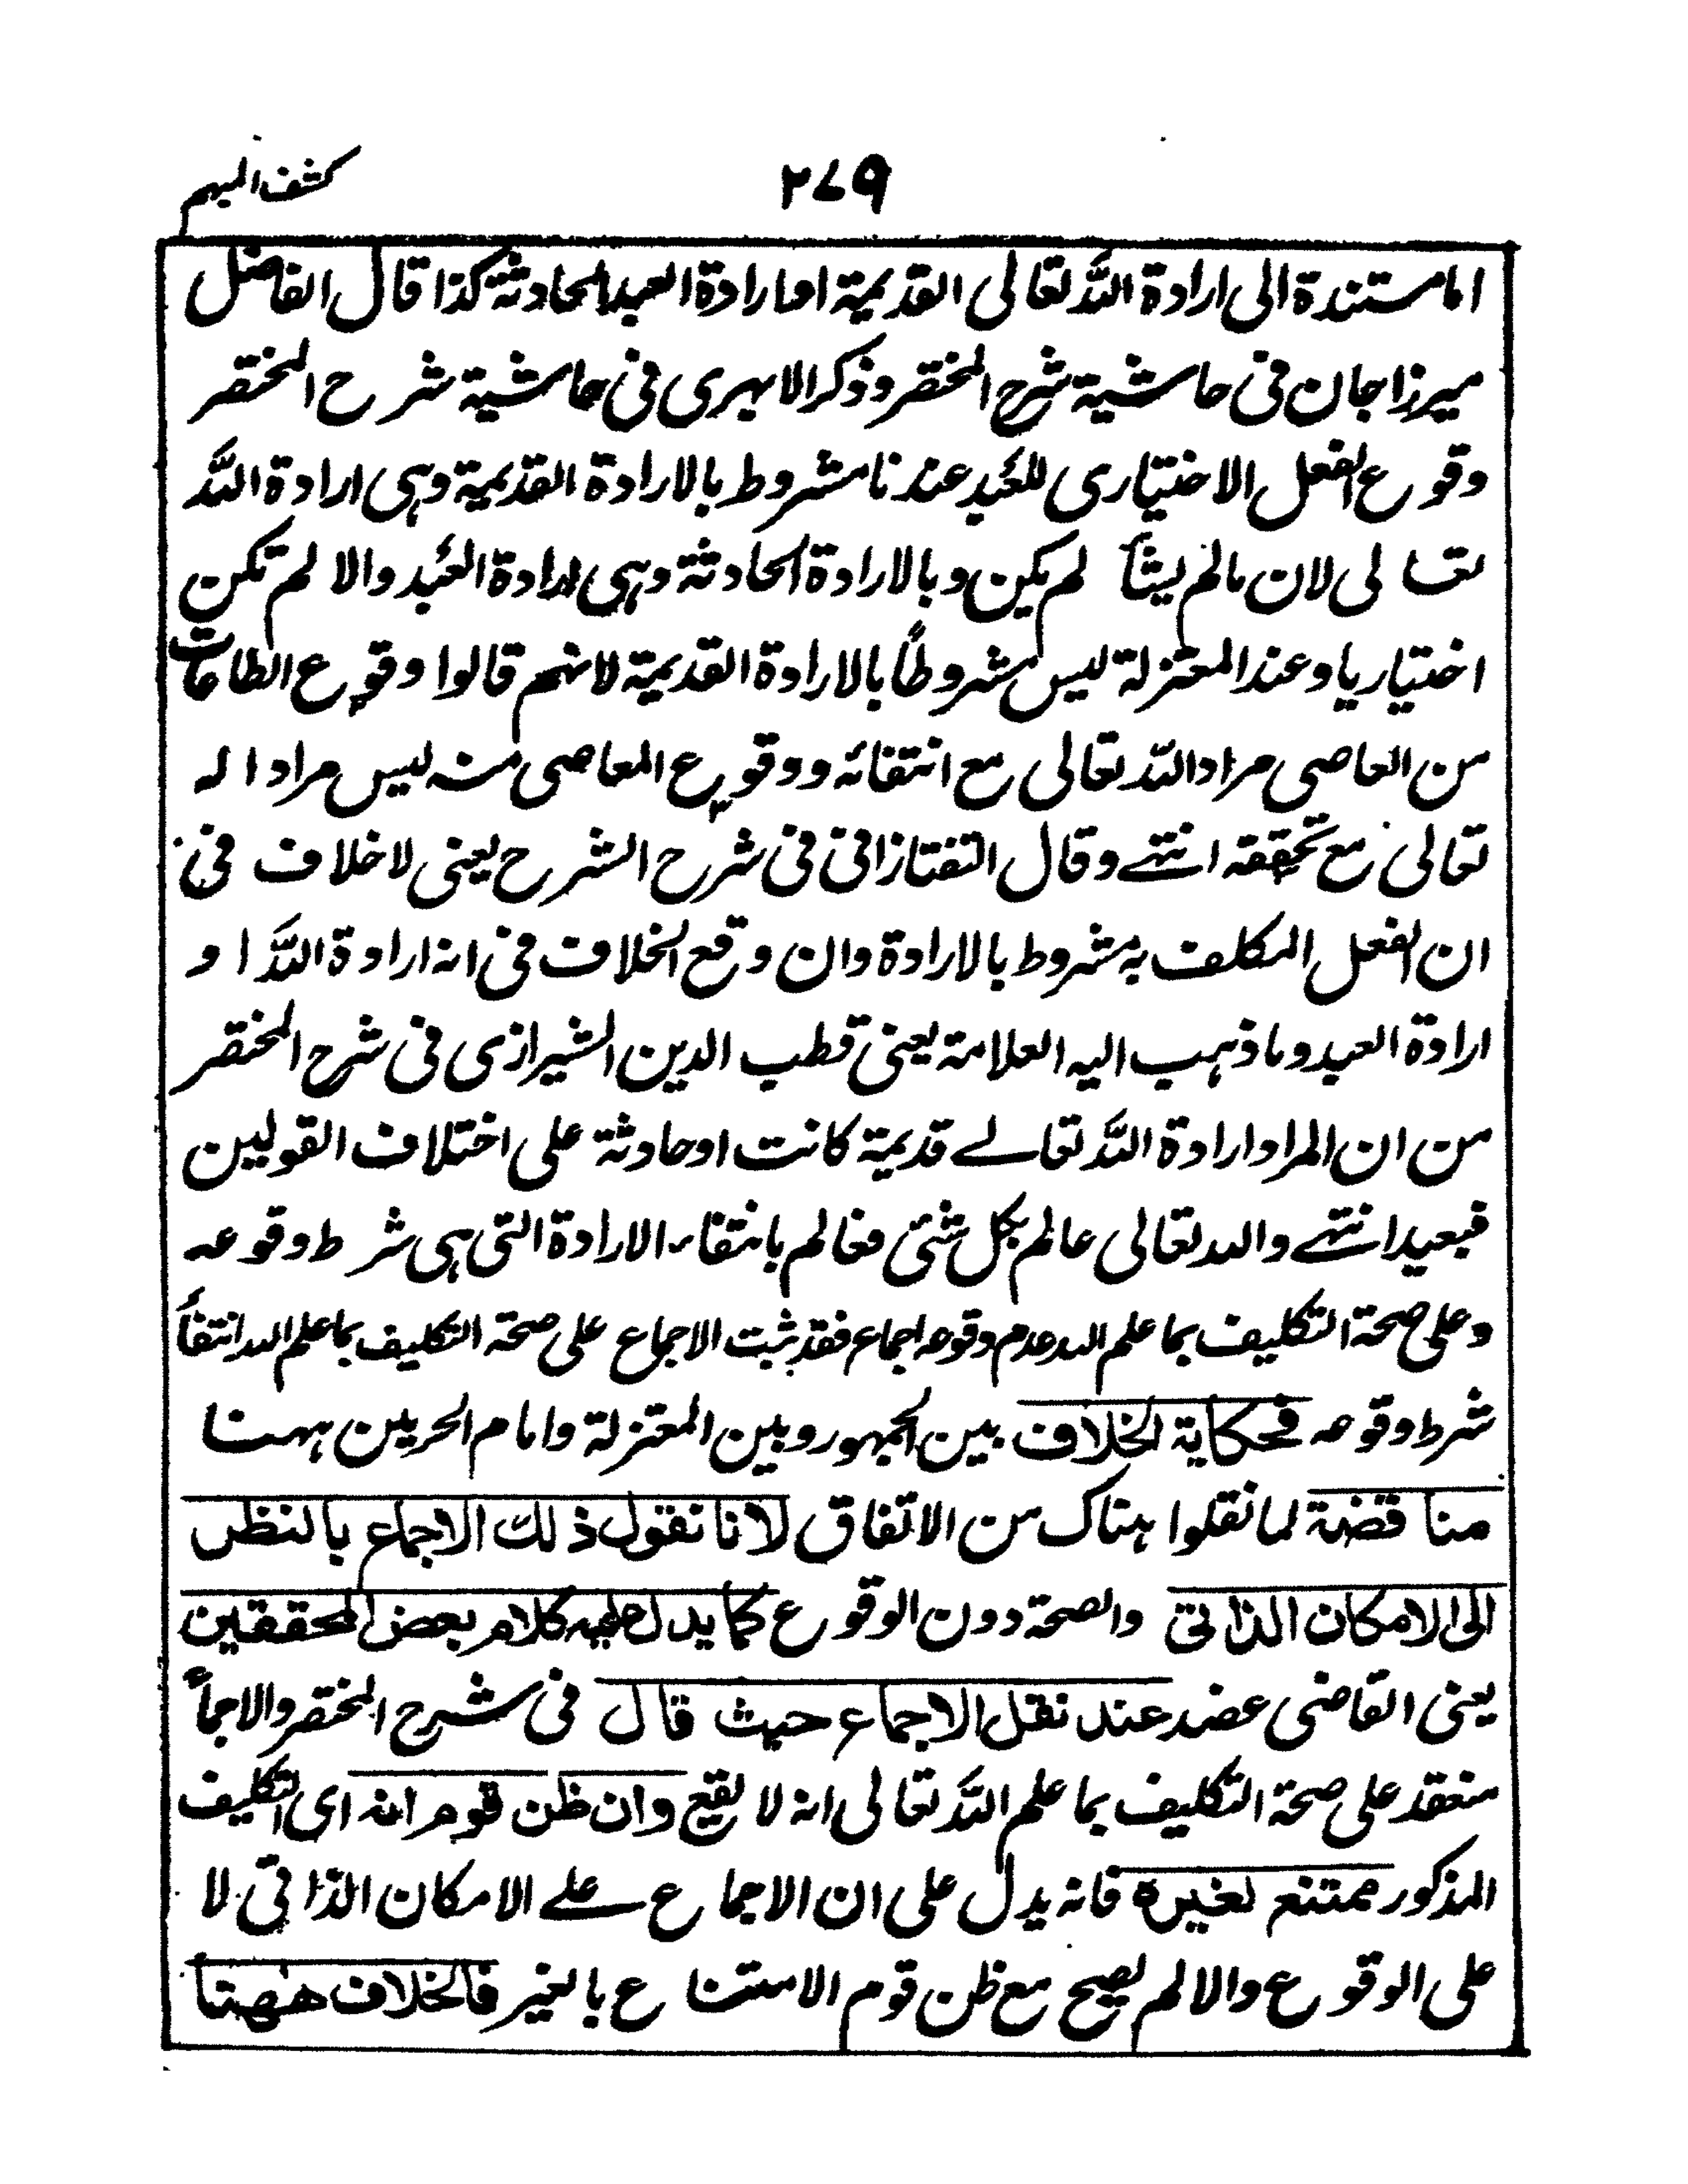 كشف المبهم
٢٧٩
اما مستندة الى ارادة الله تعالى القديمة او ارادة العبد الحادثة كذا قال الفاضل
ميرزا جان فى حاشية شرح المختصر وذكر الابهرى فى حاشية شرح المختصر
وقوع الفعل الاختيارى للعبد عندنا مشروط بالارادة القديمة وهى ارادة الله
تعالى لان مالم يشأ لم يكن وبالارادة الحادثة وهى ارادة العبد والا لم تكن
اختياريا وعند المعتزلة ليس مشروطا بالارادة القديمة لانهم قالوا وقوع الطاعات
من العاصى مراد الله تعالى مع انتفائه ووقوع المعاصى منه ليس مرادا له
تعالى مع تحققه انتهے وقال التفتازانى فى شرح الشرح يعنى لا خلاف فى
ان الفعل المكلف به مشروط بالارادة وان وقع الخلاف فى انه ارادة الله او
ارادة العبد وما ذهب اليه العلامة يعنى قطب الدين الشيرازى فى شرح المختصر
من ان المراد ارادة الله تعالے قديمة كانت اوحادثة على اختلاف القولين
فبعيد انتهے والله تعالى عالم بكل شئ فعالم بانتفاء الارادة التى هى شرط وقوعه
وعلى صحة التكليف بما علم الله عدم وقوعه اجماع فقد ثبت الاجماع على صحة التكليف بما علم الله انتفأ
شرط وقوعه فحكاية الخلاف بين الجمهور وبين المعتزلة وامام الحرمين ههنا
مناقضة لما نقلوا هناك من الاتفاق لانا نقول ذلك الاجماع بالنظر
الى الامكان الذاتى والصحة دون الوقوع كما يدل عليه كلام بعض المحققين
يعنى القاضى عضد عند نقل الاجماع حيث قال فى شرح المختصر والاجماً
منعقد على صحة التكليف بما علم الله تعالى انه لا يقع وان ظن قوم انه اى التكليف
المذكور ممتنع لغيره فانه يدل على ان الاجماع علے الامكان الذاتى لا
على الوقوع والا لم يصح مع ظن قوم الامتناع بالغير فالخلاف ههنا